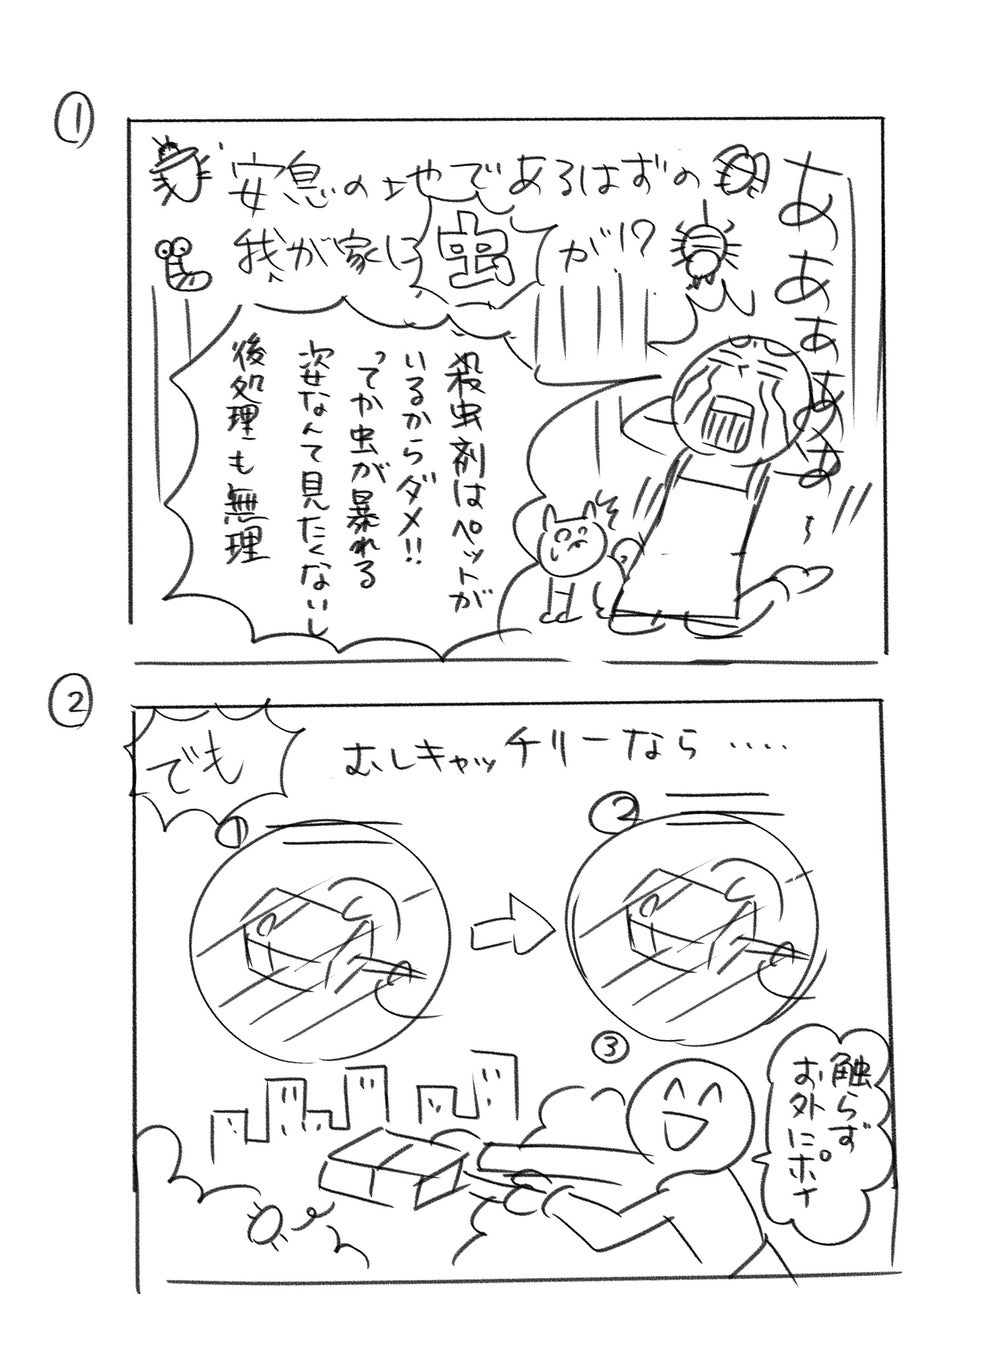 ①
安息の地であるはずの
我が家に虫が!?
あああああああ
殺虫剤はペットが
いるからダメ!!
ってか虫が暴れる
姿なんて見たくないし
後処理も無理
②
でも
むしキャッチリーなら……
①
②
③
触らず
お外にポイ